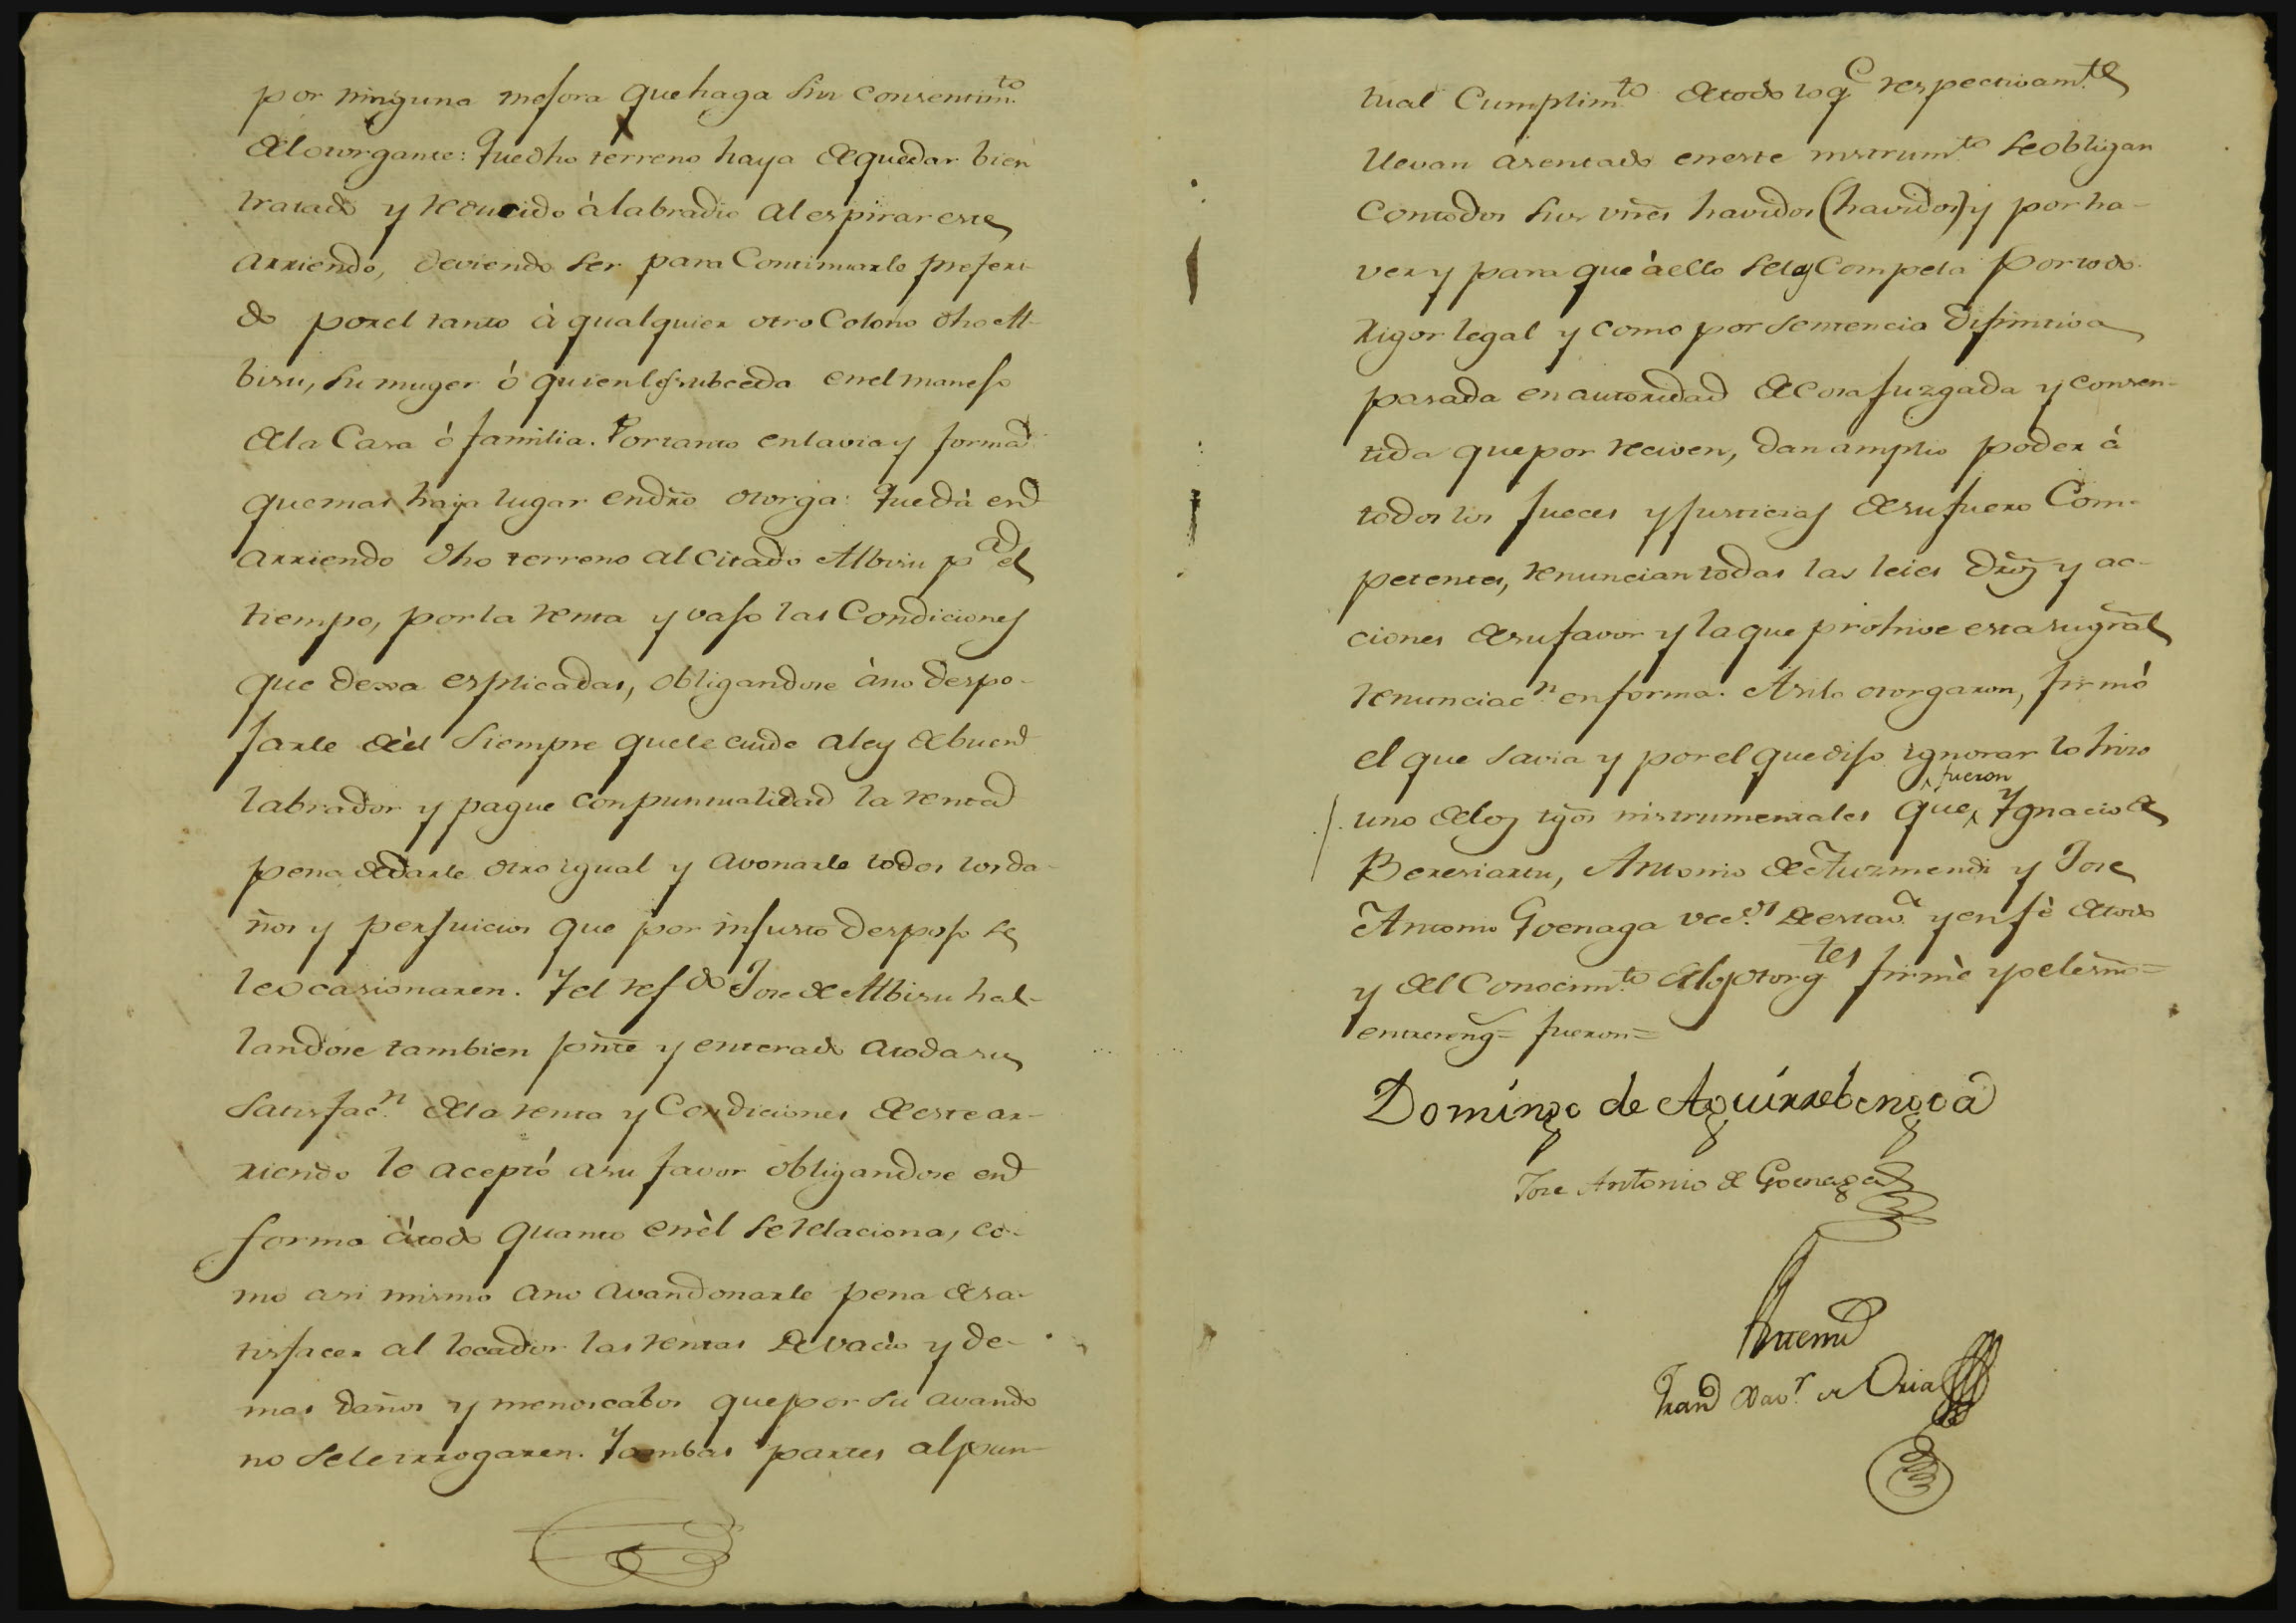 por ninguna mejora que haga sin consentim.to
del otorgante: Que dho terreno haya de quedar bien
tratado y reducido à labradio al espirar este
arriendo, deviendo ser para continuarle preferi-
do por el tanto à qualquier otro Colono dho Al-
bisu, su muger ò quien les subceda en el manejo
de la Casa ò familia. Por tanto en la via y forma
que mas haya lugar en dro otorga: Que dà en
arriendo dho terreno al citado Albisu p.a el
tiempo, por la renta y vajo las Condiciones
que dexa esplicadas, obligandose à no despo-
jarle de èl siempre que le cuide a ley de buen
labrador y pague con puntualidad la renta
pena de darle otro igual y avonarle todos los da-
ños y perjuicios que por injusto despojo se
le ocasionaren. Y el ref.do Jose de Albisu ha-
llandose tambien pnte y enterado a toda su
satisfac.n de la renta y Condiciones de este ar-
riendo le aceptò a su favor obligandose en
forma à todo quanto en èl se relaciona, co-
mo asi mismo a no avandonarle pena de sa-
tisfacer al locador las rentas de vacio y de-
mas daños y menoscabos que por su avando
no se le irrogaren. Y ambas partes al pun-
tual Cumplim.to de todo lo q.e respectivam.te
llevan àsentado en este instrum.to se obligan
con todos sus vnes havidos (havidos) y por ha-
ver y para que à ello se les Compela por todo
rigor legal y como por sentencia difinitiva
pasada en autoridad de cosa juzgada y consen-
tida que por reciven, dan amplio poder à
todos los Jueces y Justicias de su fuero Com-
petentes, renuncian todas las leies dros y ac-
ciones de su favor y la que prohive esta su gral
renunciac.n en forma. Asi lo otorgaron, firmò
el que savia y por el que dijo ignorar lo hizo
uno de los tgos instrumentales que fueron Ygnacio de
Beresiartu, Antonio de Auzmendi y Jose
Antonio Goenaga vec.os de esta v.a y en fè de todo
y del Conocim.to de los otorg.tes firmè yo el esno=
entrereng.s= fueron=
Domingo de Aguirrebengoa
Jose Antonio de Goenaga
Antemi
Fran Xav.r de Oria